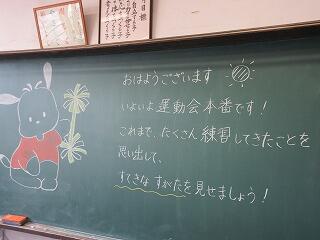 おはようございます
いよいよ運動会本番です！
これまで、たくさん練習してきたことを
思い出して、
すてきな すがたを見せましょう！